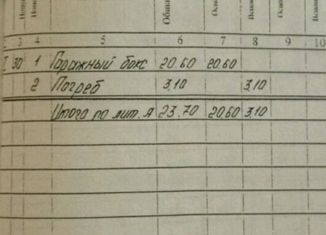 Общая
3 4 5 6 7 8 9 10
I 30 1 Гаражный бокс 20.60 20.60
2 Погреб 3.10 3.10
Итого по лит. А 23.70 20.60 3.10